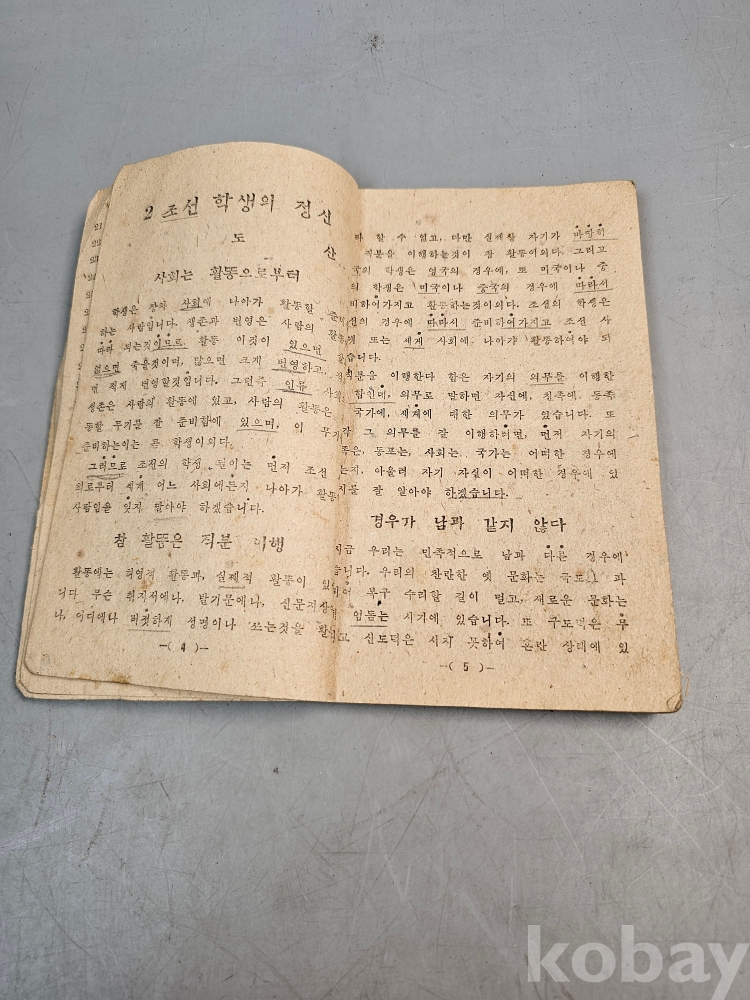 2 조선 학생의 정신
도 산
사회는 활동으로부터
학생은 장차 사회에 나아가 활동할 준비
하는 사람입니다. 생존과 번영은 사람의 활동
따라 되는것이므로 활동 이것이 있으면
없으면 죽을것이며, 많으면 크게 번영하고
면 적게 번영할것입니다. 그런즉 인류 사회
생존은 사람의 활동에 있고, 사람의 활동은
동할 무기를 잘 준비함에 있으며, 이 무기
준비하는이는 곧 학생이외다.
그러므로 조선의 학생 된이는 먼저 조선
의로부터 세계 어느 사회에든지 나아가 활동
사람임을 잊지 말아야 하겠습니다.
참 활동은 직분 이행
활동에는 허영적 활동과, 실제적 활동이 있
니다. 무슨 취지서에나, 발기문에나, 신문지상
나, 어디에나 버젓하게 성명이나 쓰는것을 활
—( 4 )—
라 할 수 없고, 다만 실제상 자기가 마땅히
직분을 이행하는것이 참 활동이외다. 그리고
국의 학생은 영국의 경우에, 또 미국이나 중
의 학생은 미국이나 중국의 경우에 따라서
비하여가지고 활동하는것이외다. 조선의 학생은
선의 경우에 따라서 준비하여가지고 조선 사
또는 세계 사회에 나아가 활동하여야 되
습니다.
직분을 이행한다 함은 자기의 의무를 이행한
함인바, 의무로 말하면 자신에, 친족에, 동족
국가에, 세계에 대한 의무가 있습니다. 또
각 그 의무를 잘 이행하려면, 먼저 자기의
족은, 동포는, 사회는, 국가는 어떠한 경우에
는지, 아울러 자기 자신이 어떠한 경우에 있
지를 잘 알아야 하겠습니다.
경우가 남과 같지 않다
지금 우리는 민족적으로 남과 다른 경우에
습니다. 우리의 찬란한 옛 문화는 극도로 파
어 부구 수리할 길이 멀고, 새로운 문화는
움돋는 시기에 있습니다. 또 구도덕은 무
고 신도덕은 서지 못하여 혼란 상태에 있
—( 5 )—
kobay